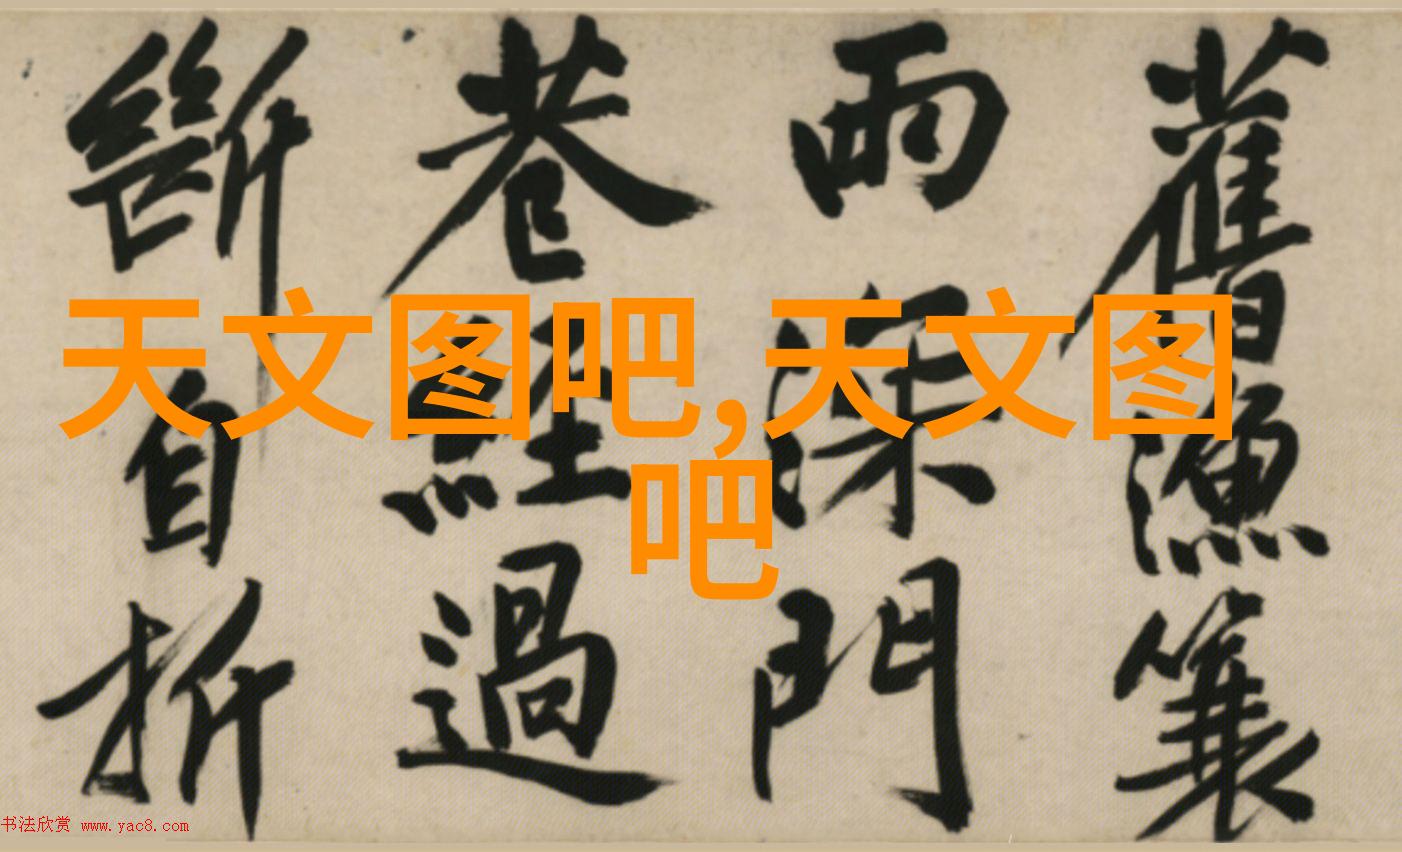 舊漁簑
雨深門
巷經過
斷自折
天文图吧,天文图
吧
书法欣赏 www.yac8.com